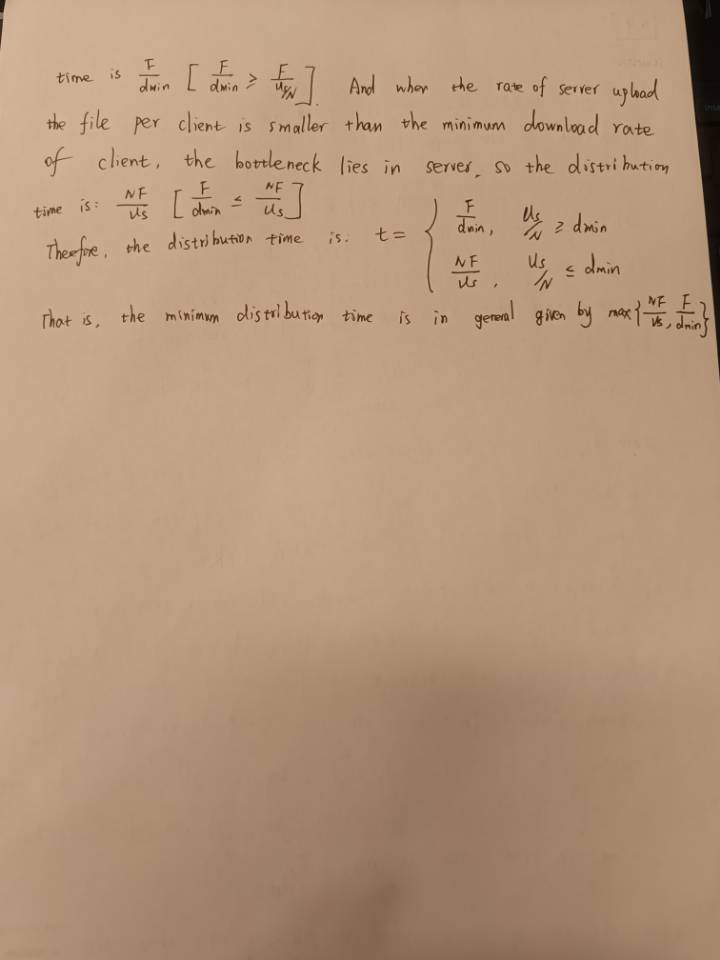 time is F/dmin [ F/dmin ≥ F/(us/N) ]. And when the rate of server upload
the file per client is smaller than the minimum download rate
of client, the bottleneck lies in server, so the distribution
time is: NF/us [ F/dmin ≤ NF/us ]
Therefore, the distribution time is: t = { F/dmin, us/N ≥ dmin
NF/us, us/N ≤ dmin
That is, the minimum distribution time is in general given by max{NF/us, F/dmin}